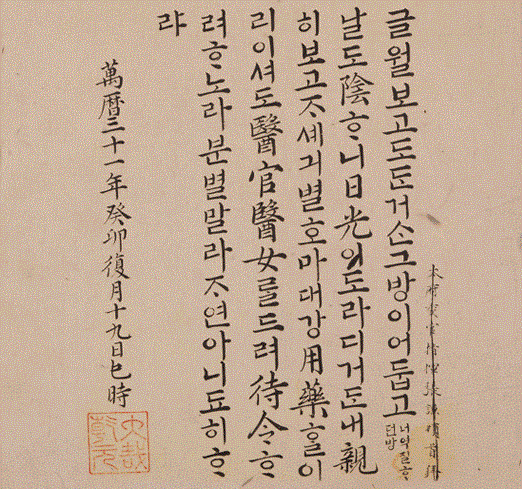 글월보고도ᄃᆞᆫ거ᄉᆞᆫ그방이어둡고
너역질ᄒᆞ
던방
날도陰ᄒᆞ니日光이도라디거ᄃᆞᆫ내親
히보고ᄌᆞ셰긔별호마대강用藥ᄒᆞᆯ이
리이셔도醫官醫女ᄅᆞᆯ드려待令ᄒᆞ
려ᄒᆞ노라분별말라ᄌᆞ연아니됴히ᄒᆞ
랴
萬曆三十一年癸卯復月十九日巳時